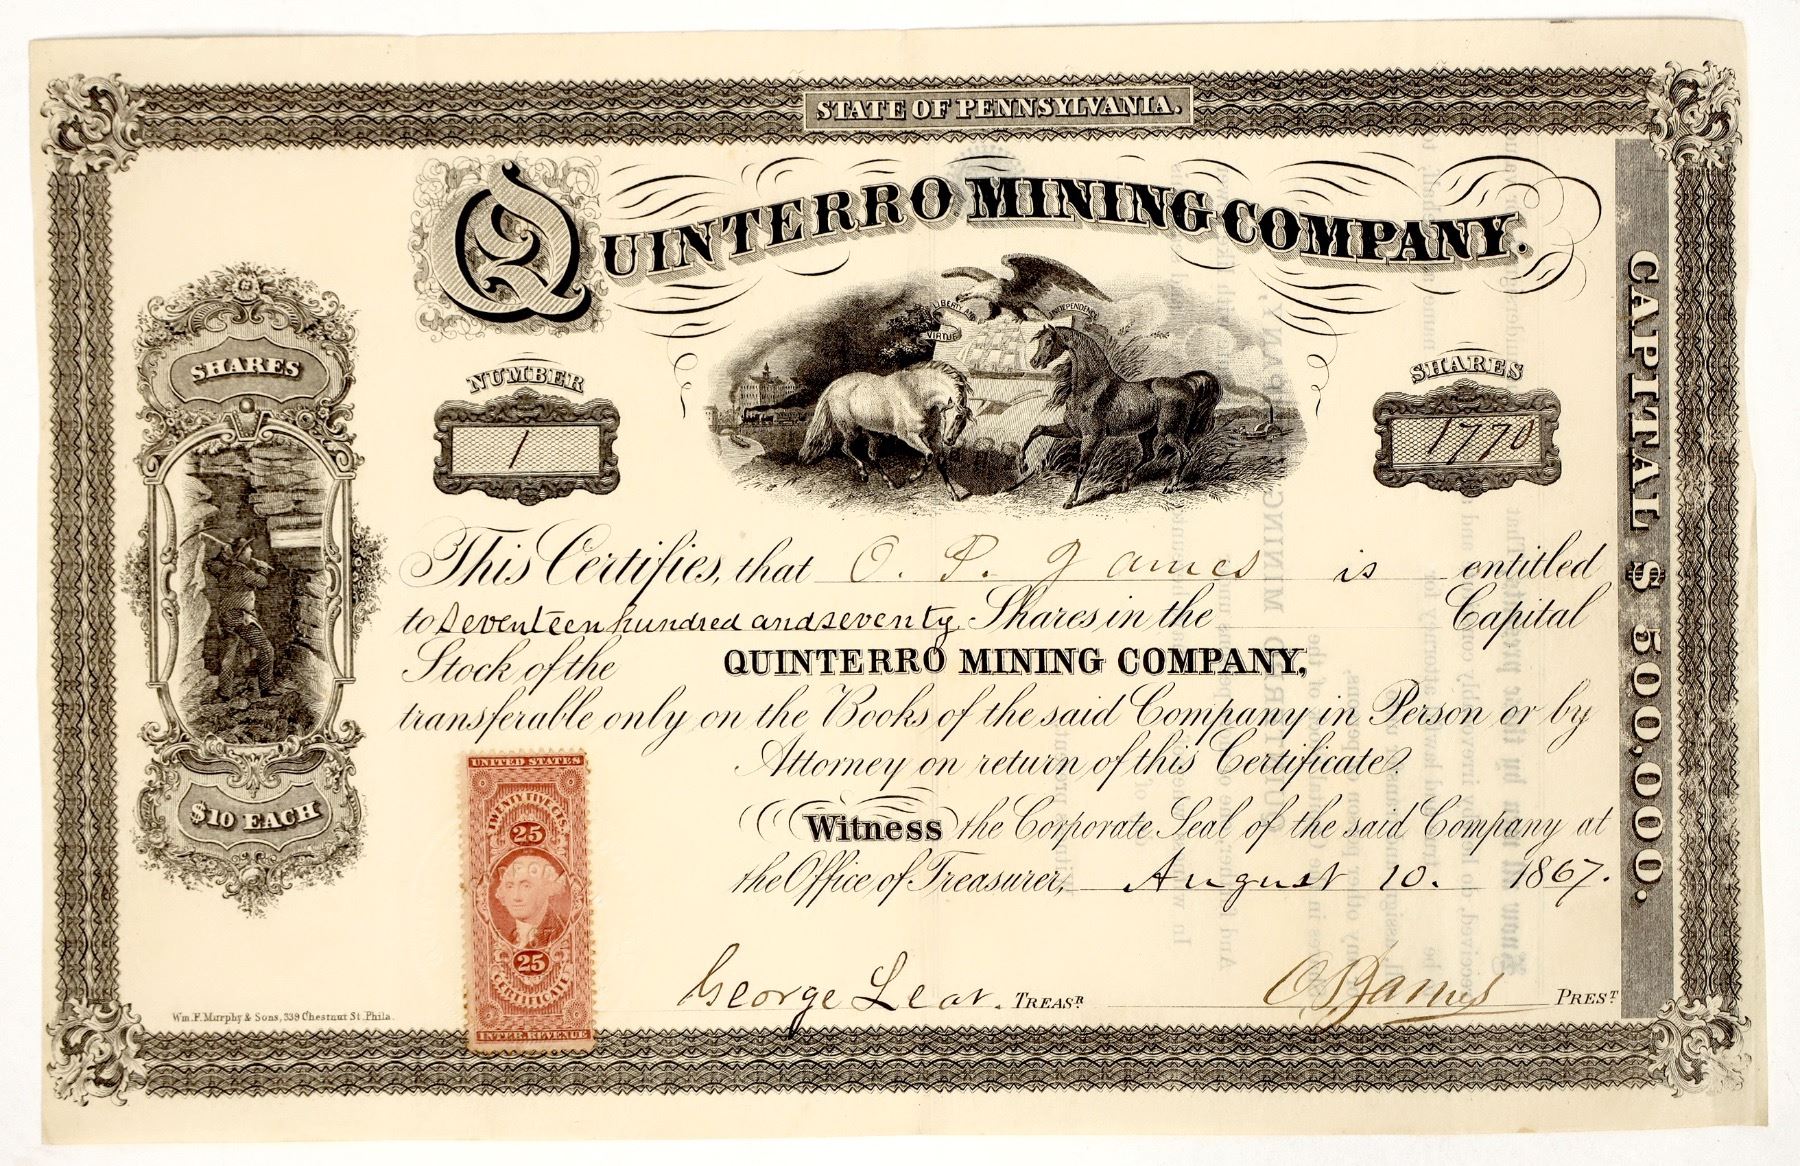 STATE OF PENNSYLVANIA.
QUINTERRO MINING COMPANY.
LIBERTY AND INDEPENDENCE
VIRTUE
SHARES
NUMBER
1
SHARES
1770
CAPITAL $ 500,000.
This Certifies, that O. P. James is entitled
to Seventeen hundred and seventy Shares in the Capital
Stock of the QUINTERRO MINING COMPANY,
transferable only on the Books of the said Company in Person or by
Attorney on return of this Certificate.
$10 EACH
Witness the Corporate Seal of the said Company at
the Office of Treasurer, August 10. 1867.
UNITED STATES
TWENTY FIVE CTS.
25
25
CERTIFICATE
INTER. REVENUE
George Leat. TREASR
O P James PREST
Wm. F. Murphy & Sons, 339 Chestnut St. Phila.